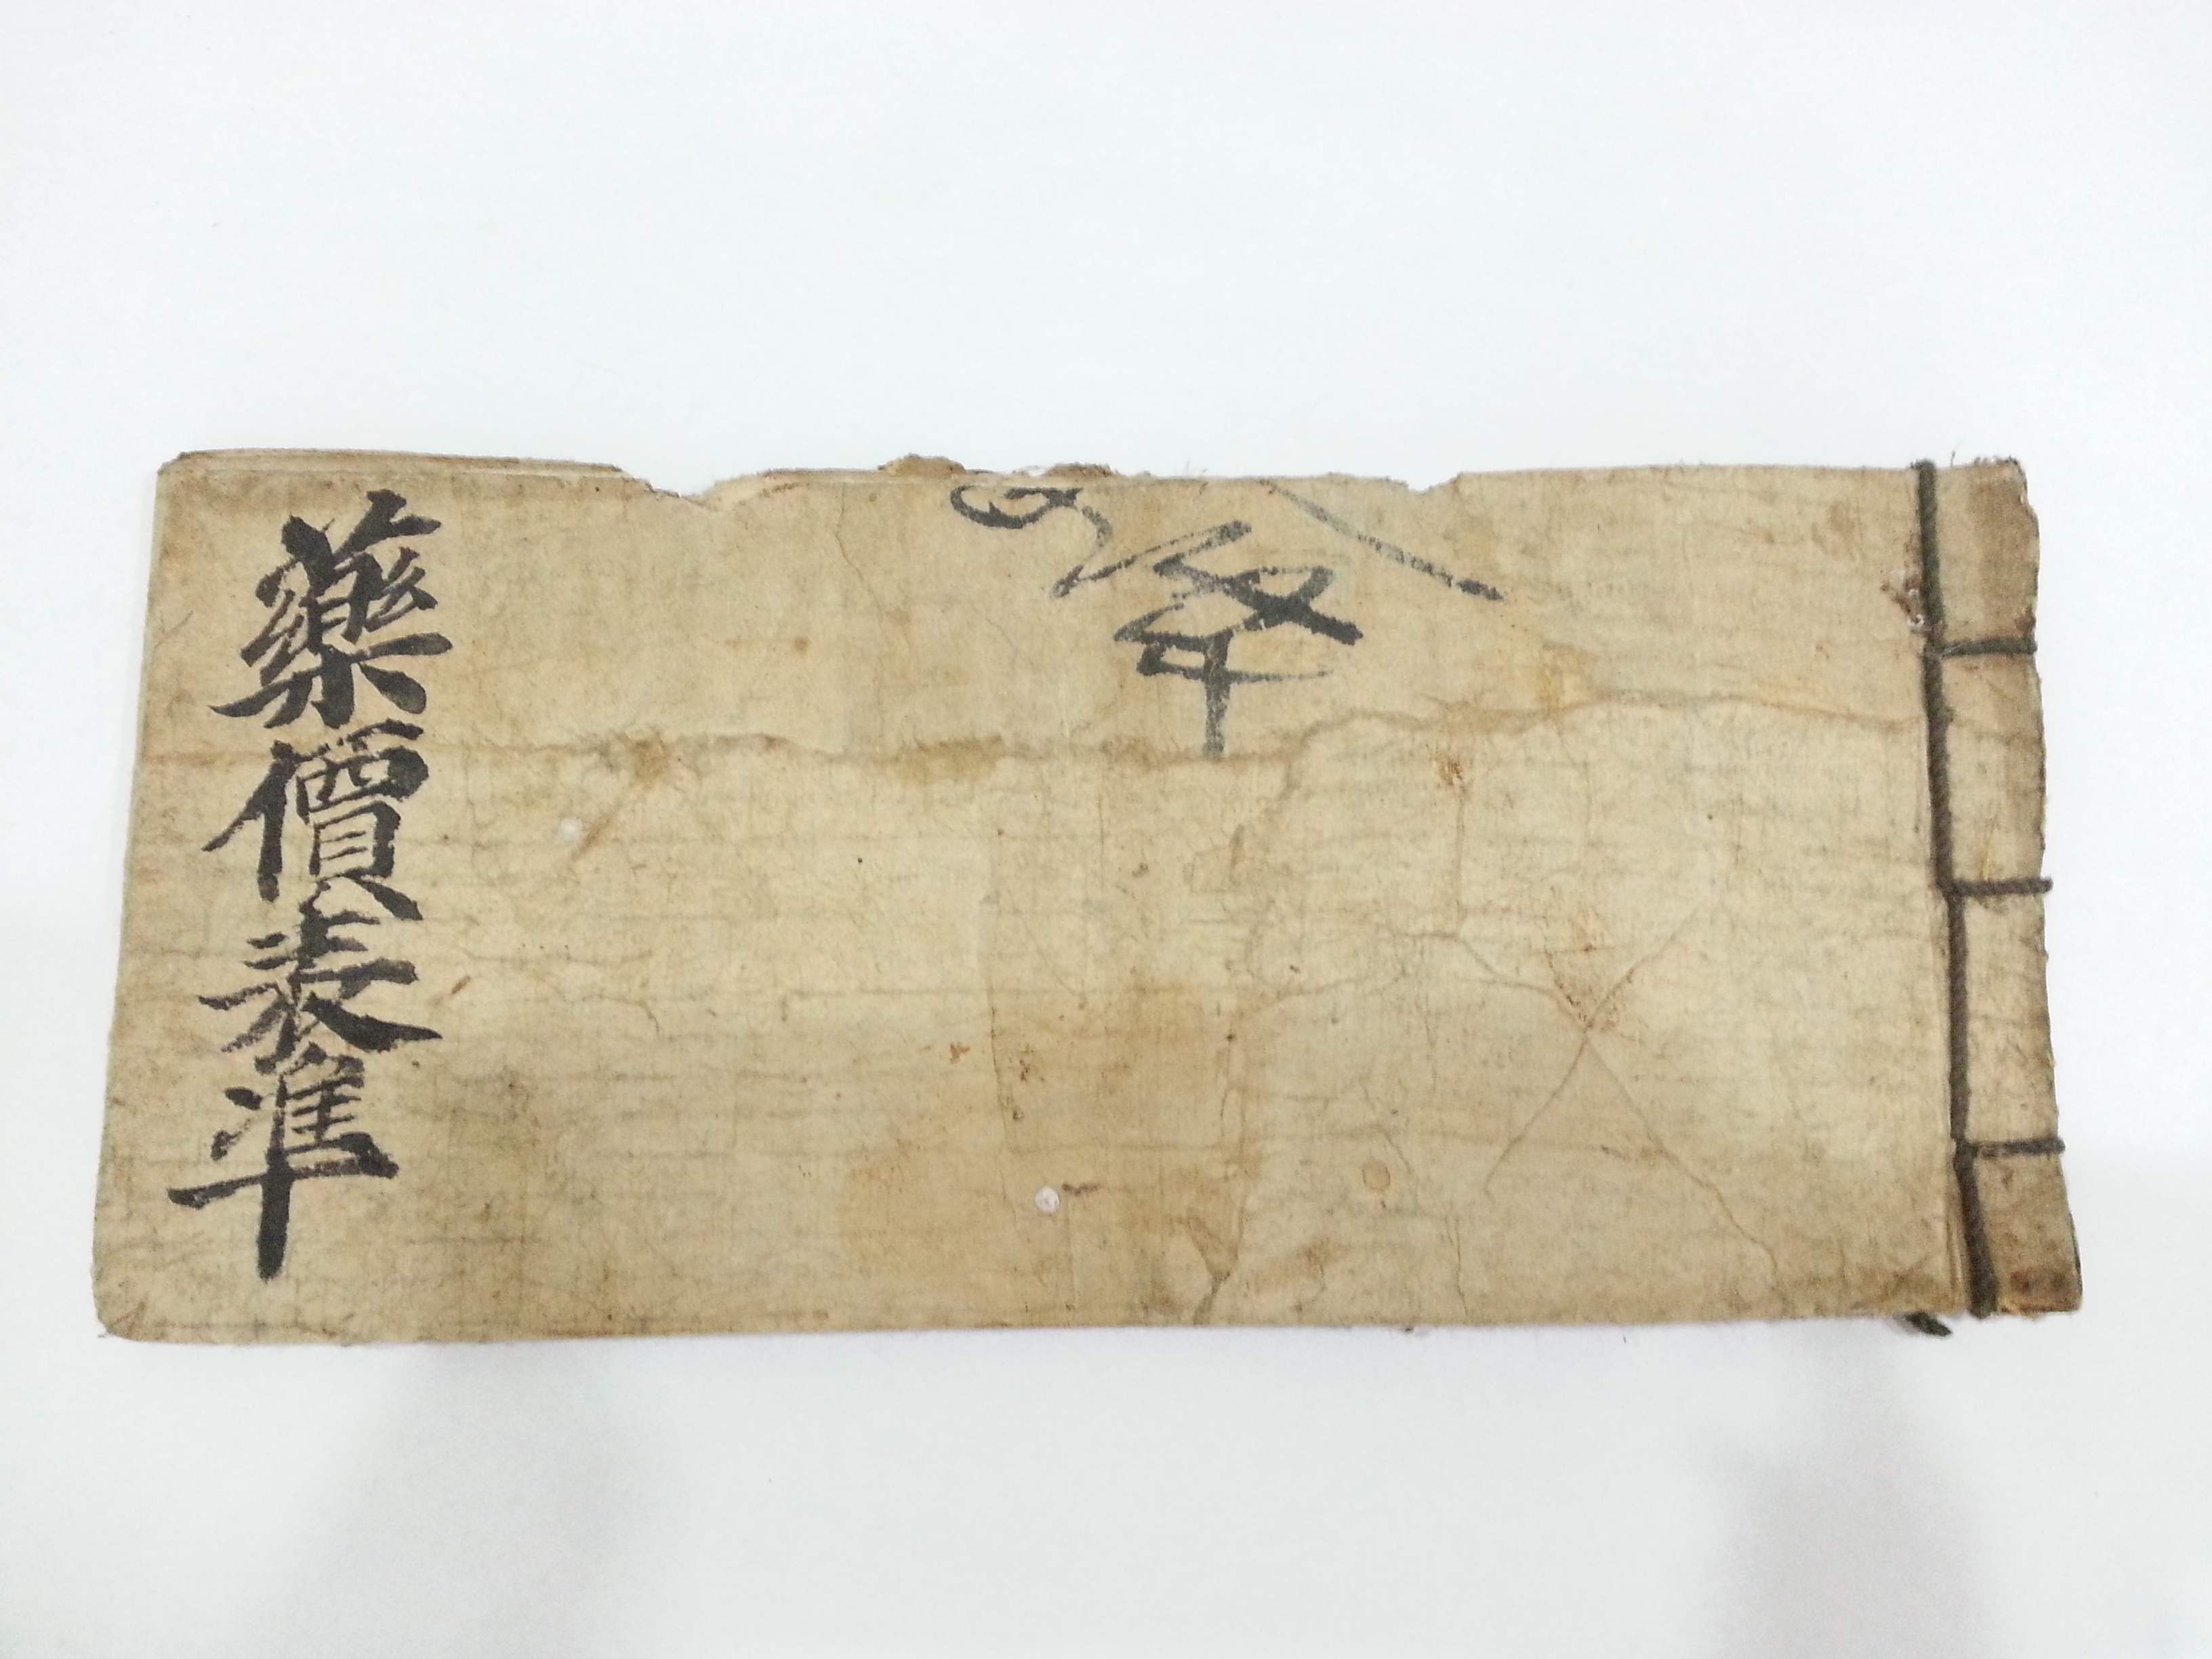 藥價表準